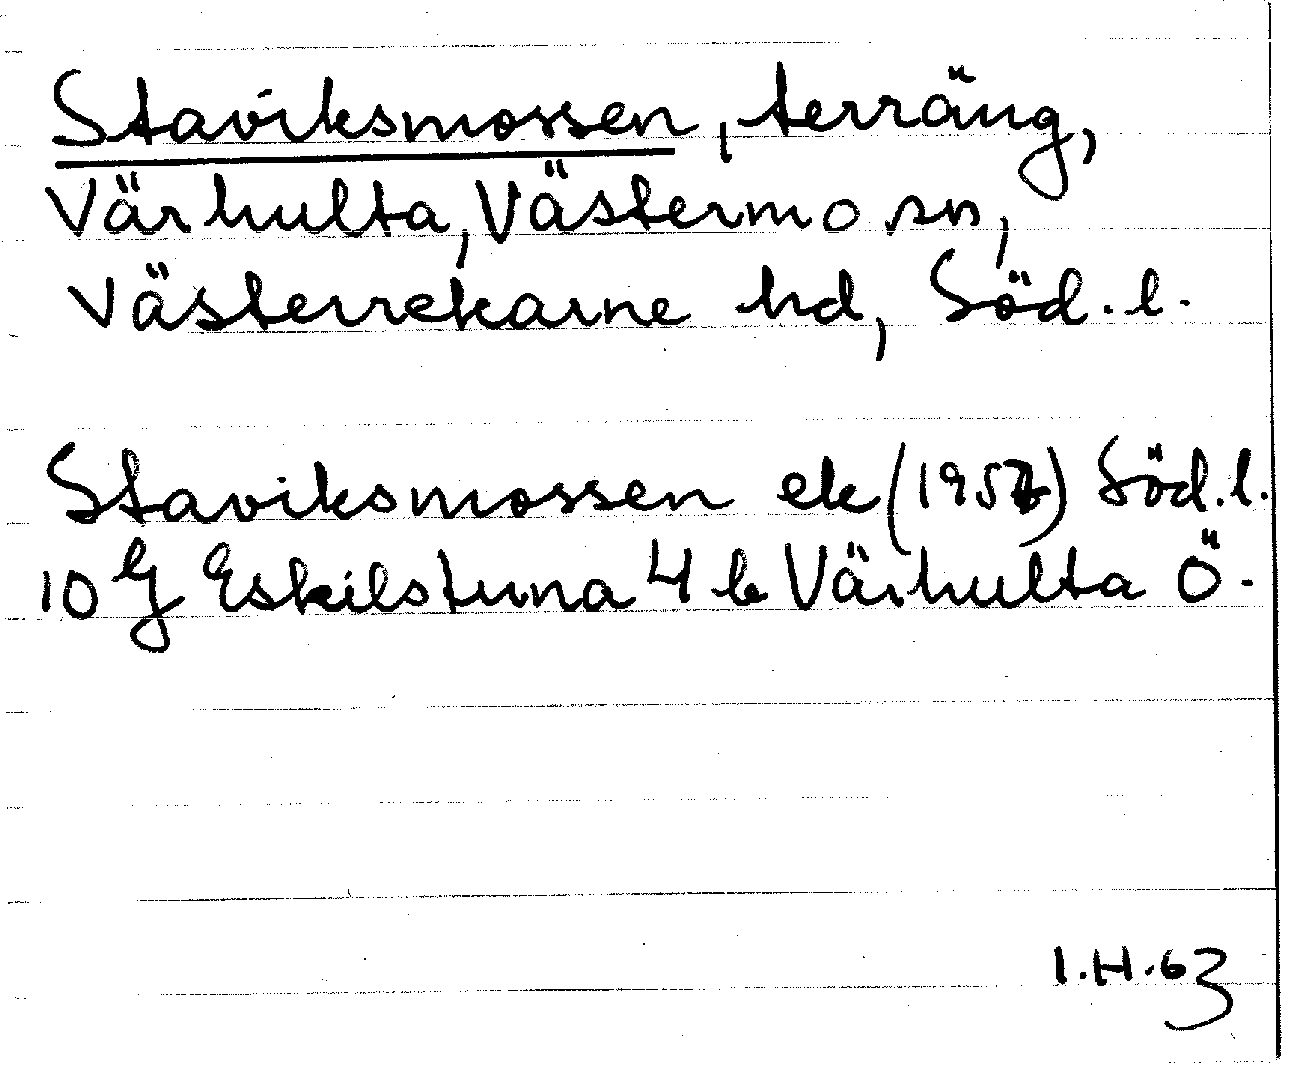 Staviksmossen, terräng,
Värhulta, Västermo sn,
Västerrekarne hd, Söd. l.
Staviksmossen ek (1957) Söd. l.
10 G Eskilstuna 4 b Värhulta Ö.
I.H.63